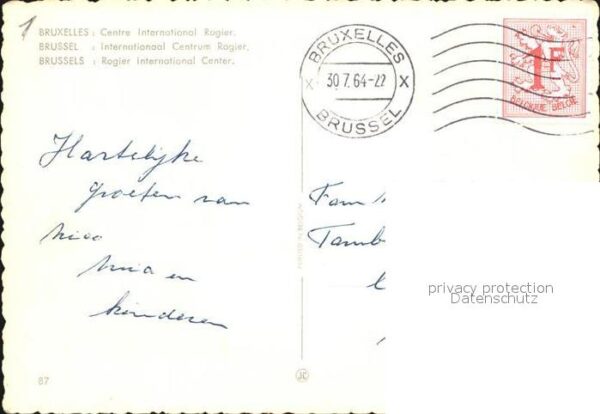 1
BRUXELLES : Centre International Rogier.
BRUSSEL : Internationaal Centrum Rogier.
BRUSSELS : Rogier International Center.
BRUXELLES
X 30.7.64-22 X
BRUSSEL
1F
BELGIQUE BELGIE
Hartelijke
groeten van
mia en
kinderen
Fam
Tamb
PRINTED IN BELGIUM
privacy protection
Datenschutz
87